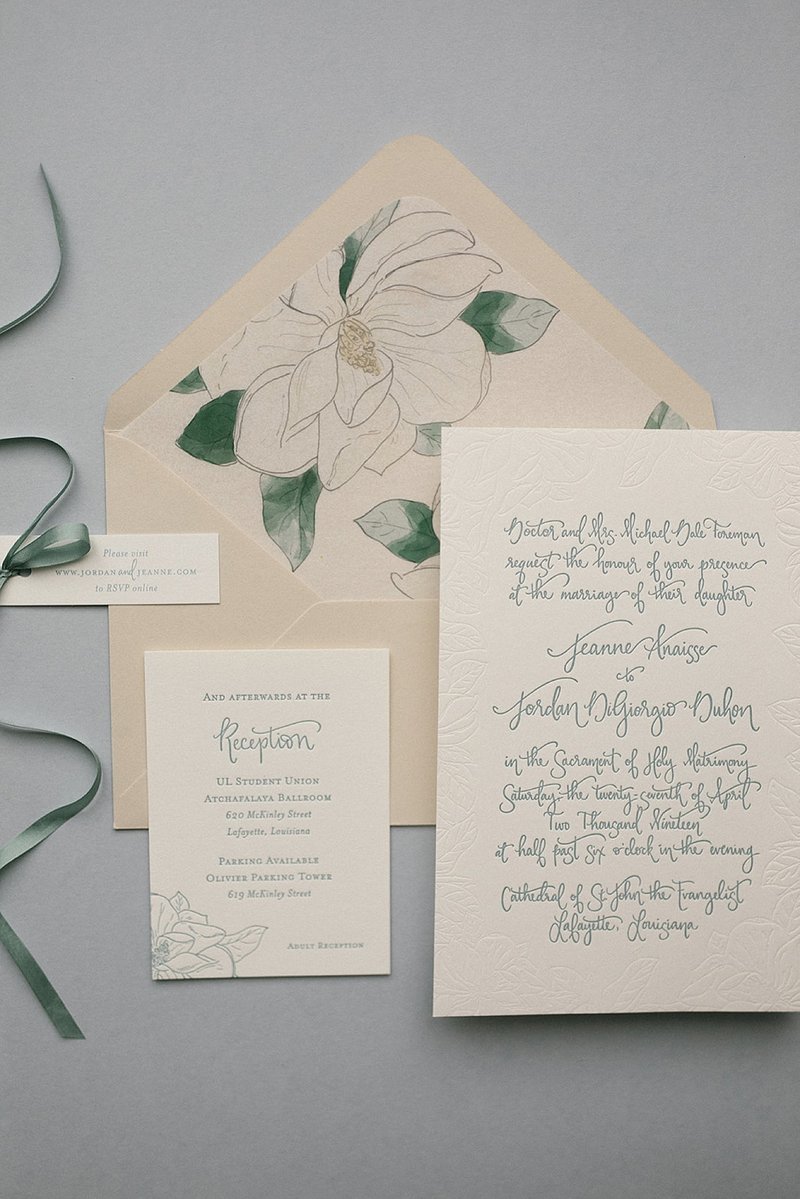 Please visit
www.jordanandjeanne.com
to RSVP online
And afterwards at the
Reception
UL Student Union
Atchafalaya Ballroom
620 McKinley Street
Lafayette, Louisiana
Parking Available
Olivier Parking Tower
619 McKinley Street
Adult Reception
Doctor and Mrs. Michael Dale Foreman
request the honour of your presence
at the marriage of their daughter
Jeanne Anaisse
to
Jordan DiGiorgio Duhon
in the Sacrament of Holy Matrimony
Saturday, the twenty-seventh of April
Two Thousand Nineteen
at half past six o'clock in the evening
Cathedral of St. John the Evangelist
Lafayette, Louisiana